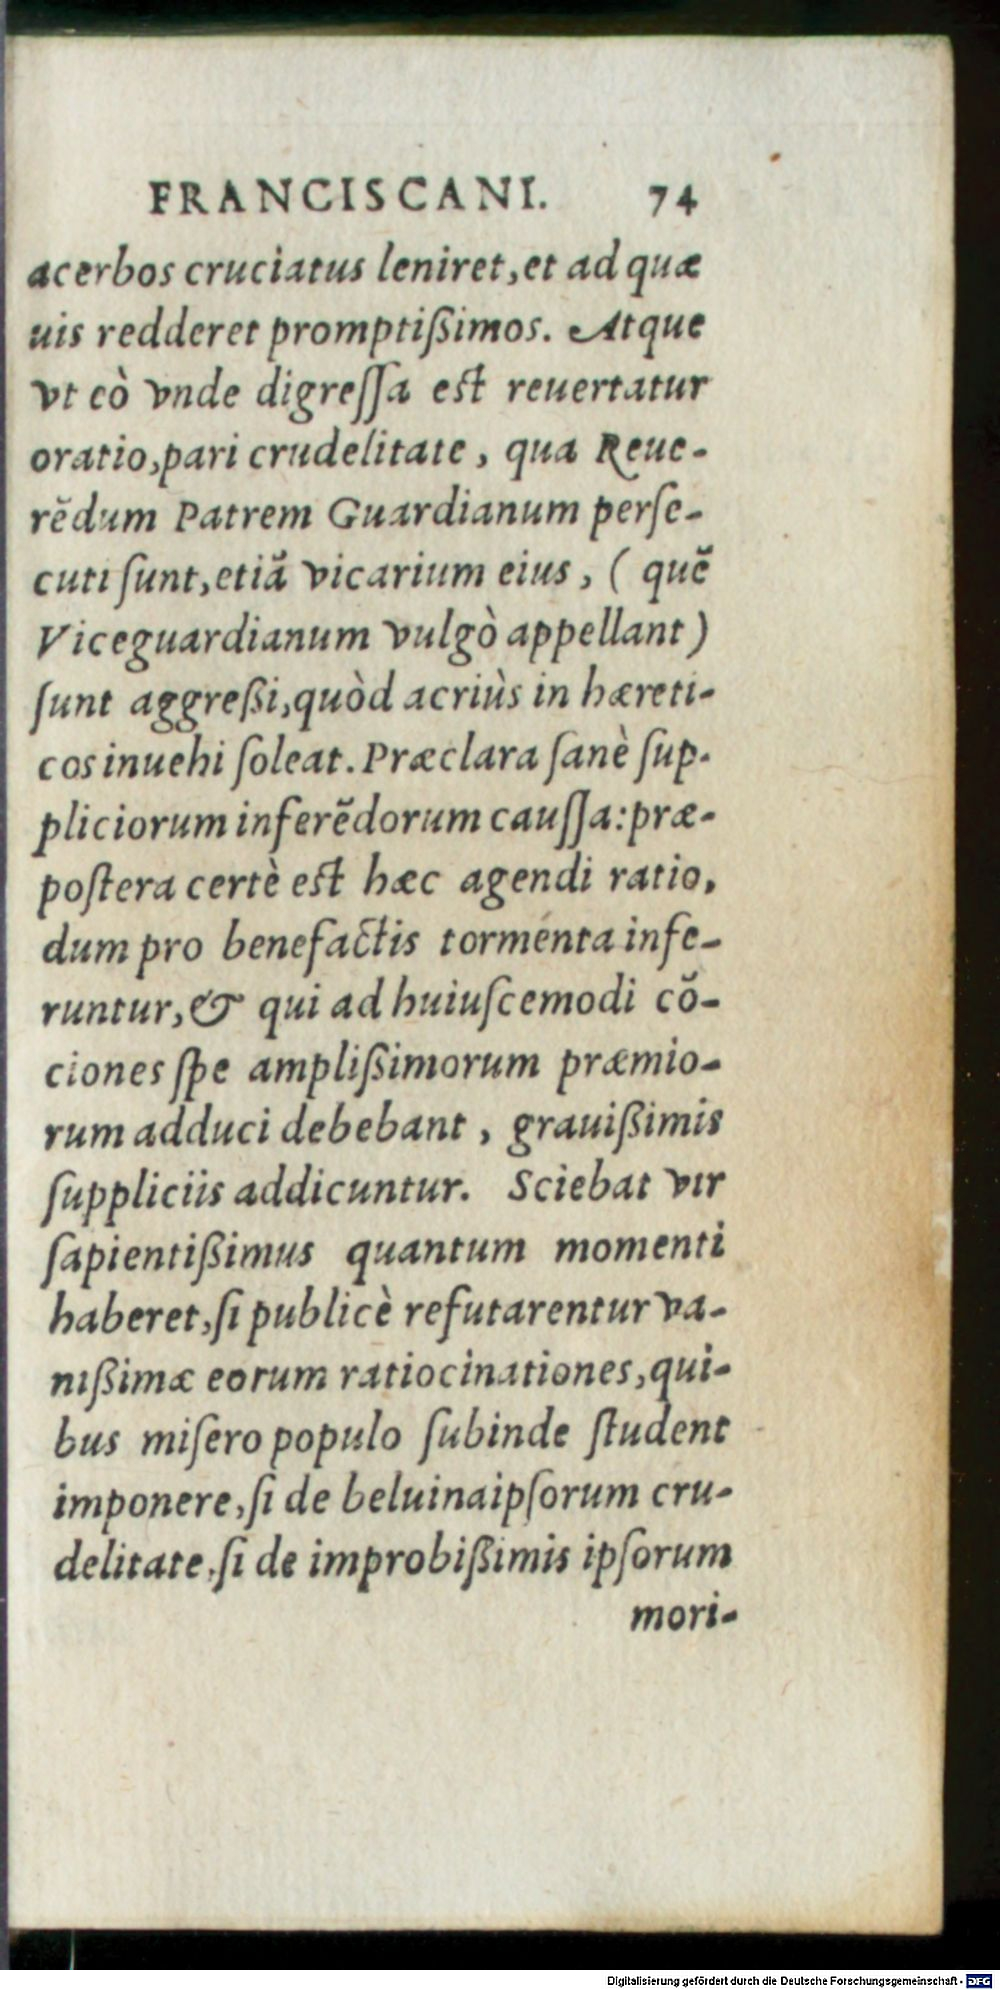 FRANCISCANI. 74
acerbos cruciatus leniret, et ad quæ
uis redderet promptißimos. Atque
vt eò vnde digreſſa est reuertatur
oratio, pari crudelitate, qua Reue-
rẽdum Patrem Guardianum perſe-
cuti ſunt, etiã vicarium eius, (quẽ
Viceguardianum vulgò appellant)
ſunt aggreßi, quòd acriùs in hæreti-
cos inuehi ſoleat. Præclara ſanè ſup-
pliciorum inferẽdorum cauſſa: præ-
poſtera certè est hæc agendi ratio,
dum pro benefactis tormenta infe-
runtur, & qui ad huiuſcemodi cõ-
ciones ſpe amplißimorum præmio-
rum adduci debebant, grauißimis
ſuppliciis addicuntur. Sciebat vir
ſapientißimus quantum momenti
haberet, ſi publicè refutarentur va-
nißimæ eorum ratiocinationes, qui-
bus miſero populo ſubinde ſtudent
imponere, ſi de beluina ipſorum cru-
delitate, ſi de improbißimis ipſorum
mori-
Digitalisierung gefördert durch die Deutsche Forschungsgemeinschaft - DFG